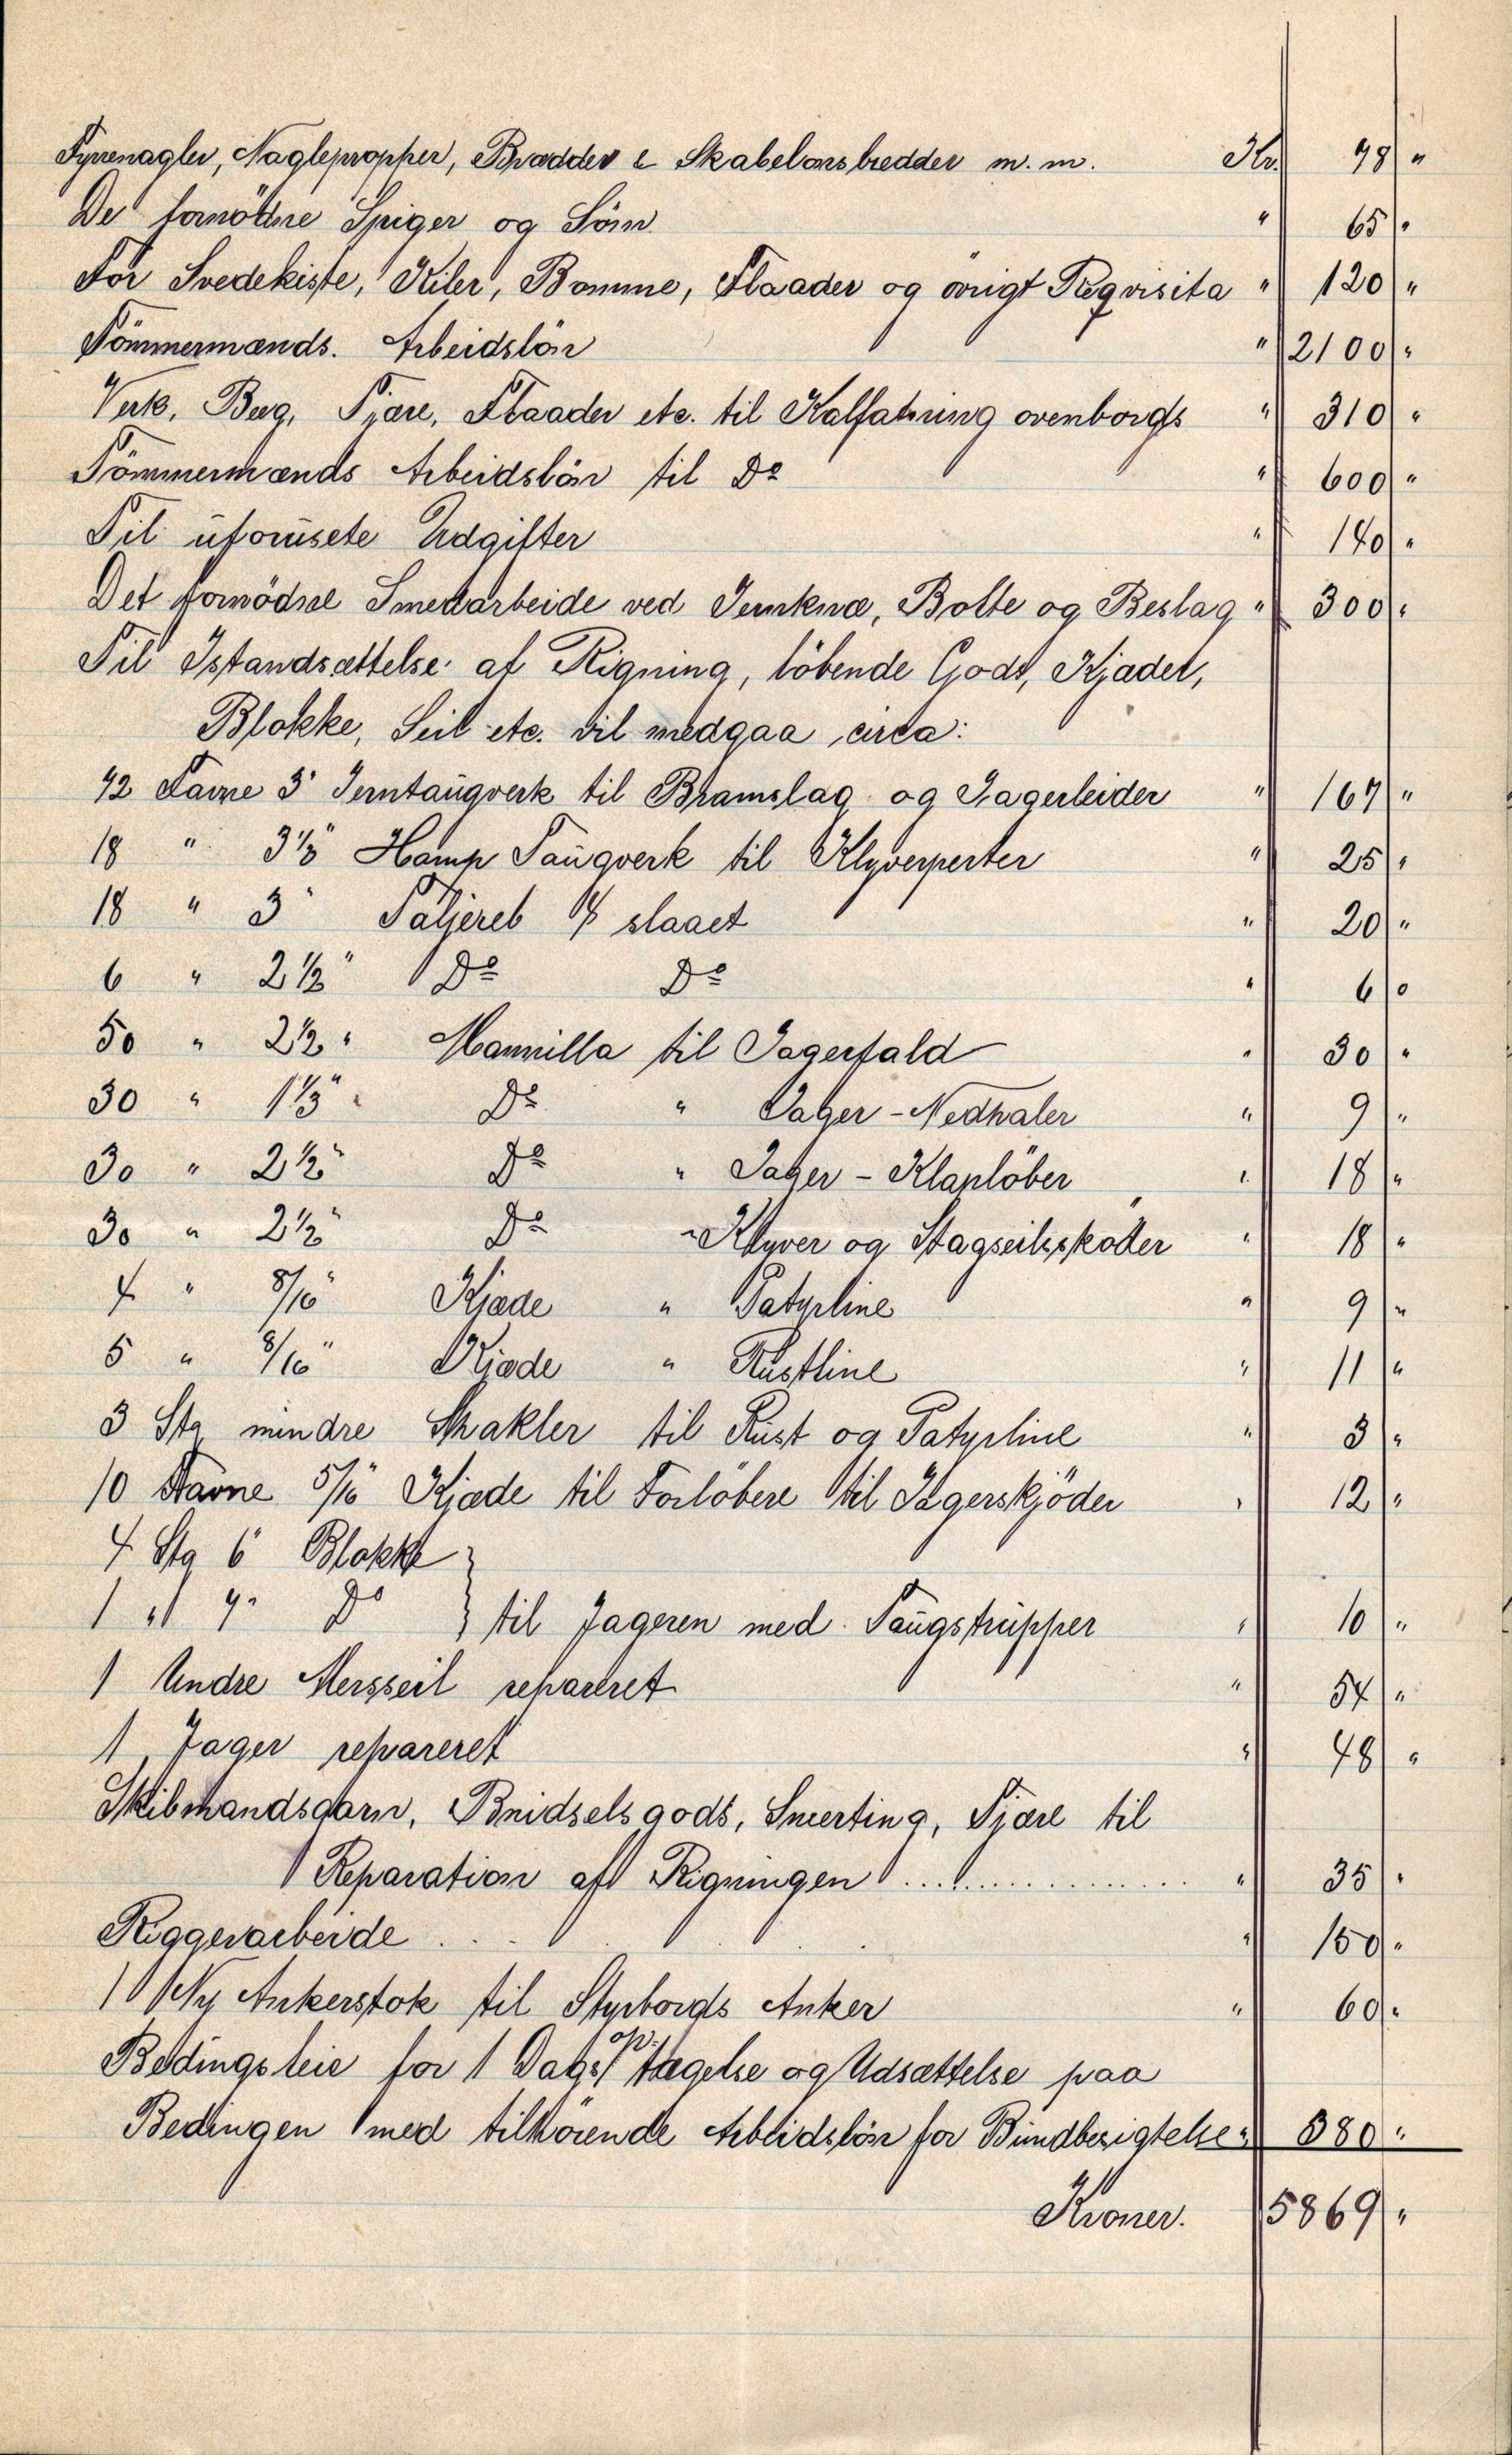 Fyrrenagler, Naglepropper, Brædder & Skabelonsbredder m. m. Kr. 78 "
De fornödne Spiger og Söm " 65 "
For Svedekiste, Kiler, Bomme, Flaader og övrigt Reqvisita " 120 "
Tömmermænds. Arbeidslön " 2100 "
Verk, Beg, Tjære, Flaader etc. til Kalfatring ovenbords " 310 "
Tömmermænds Arbeidslön til Do " 600 "
Til uforusete Udgifter " 140 "
Det fornödne Smedarbeide ved Jernknæ, Bolte og Beslag " 300 "
Til Istandsættelse af Rigning, löbende Gods, Kjæder,
Blokke, Seil etc. vil medgaa circa:
72 Favne 3" Jerntaugverk til Bramslag og Jagerleider " 167 "
18 " 3 1/2" Hamp Taugverk til Klyverperter " 25 "
18 " 3" Taljereb 4/ slaaet " 20 "
6 " 2 1/2" Do Do " 6 "
50 " 2 1/2 " Mannilla til Jagerfald " 30 "
30 " 1 1/3" " Do " Jager-Nedhaler " 9 "
30 " 2 1/2" Do " Jager - Klaplöber " 18 "
30 " 2 1/2" Do " Klyver og Stagseilsskøder " 18 "
4 " 8/16" Kjæde " Patyrline " 9 "
5 " 8/16" Kjæde " Rustline " 11 "
3 Stq mindre Shakler til Rust og Patyrline " 3 "
10 Favne 5/16" Kjæde til Forlöbere til Jagerskjöder " 12 "
4 Stq 6" Blokke
1 " 7" Do } til Jageren med Taugstrupper " 10 "
1 Undre Mersseil repareret " 54 "
1 Jager repareret " 48 "
Skibmandsgarn, Bnidselsgods, Smerting, Tjære til
Reparation af Rigningen ................ " 35 "
Riggerarbeide . . . " 150 "
1 Ny Ankerstok til Styrbords Anker " 60 "
Bedingsleie for 1 Dags op-tagelse og Udsættelse paa
Bedingen med tilhörende Arbeidslön for Bundbesigtelse " 880 "
Kroner. 5869 "